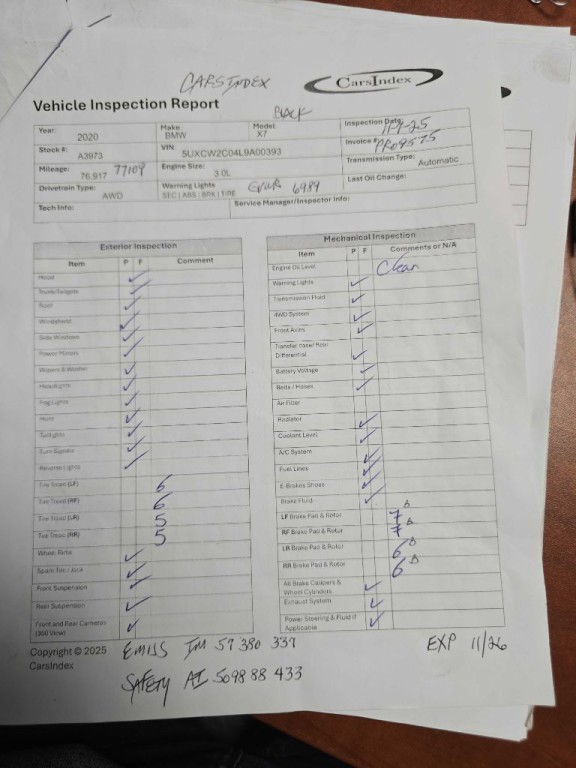 CARSINDEX
CarsIndex
Vehicle Inspection Report
BLACK
Year: 2020
Make: BMW
Model: X7
Inspection Date: 11-7-25
Stock #: A3973
VIN: 5UXCW2C04L9A00393
Invoice # PRO9575
Mileage: 76,917 77109
Engine Size: 3.0L
Transmission Type: Automatic
Drivetrain Type: AWD
Warning Lights SEC | ABS | BRK | TIRE
6989
Last Oil Change:
Tech Info:
Service Manager/Inspector Info:
Exterior Inspection
Item P F Comment
Hood
Roof
Windshield
Side Windows
Power Mirrors
Wipers & Washer
Headlights
Fog Lights
Horn
Taillights
Turn Signals
Reverse Lights
Tire Tread (LF) 6
Tire Tread (RF) 6
Tire Tread (LR) 5
Tire Tread (RR) 5
Wheel Rims
Spare Tire / Jack
Front Suspension
Rear Suspension
Front and Rear Cameras
(360 View)
Mechanical Inspection
Item P F Comments or N/A
Engine Oil Level Clean
Warning Lights
Transmission Fluid
4WD System
Front Axles
Transfer case/ Rear
Differential
Battery Voltage
Belts / Hoses
Air Filter
Radiator
Coolant Level
A/C System
Fuel Lines
E-Brakes Shoes
Brake Fluid
LF Brake Pad & Rotor 7
RF Brake Pad & Rotor 7
LR Brake Pad & Rotor 6
RR Brake Pad & Rotor 6
All Brake Calipers &
Wheel Cylinders
Exhaust System
Power Steering & Fluid if
Applicable
Copyright © 2025
CarsIndex
EMISS IM 57 380 337
EXP 11/26
SAFETY AI 5098 88 433